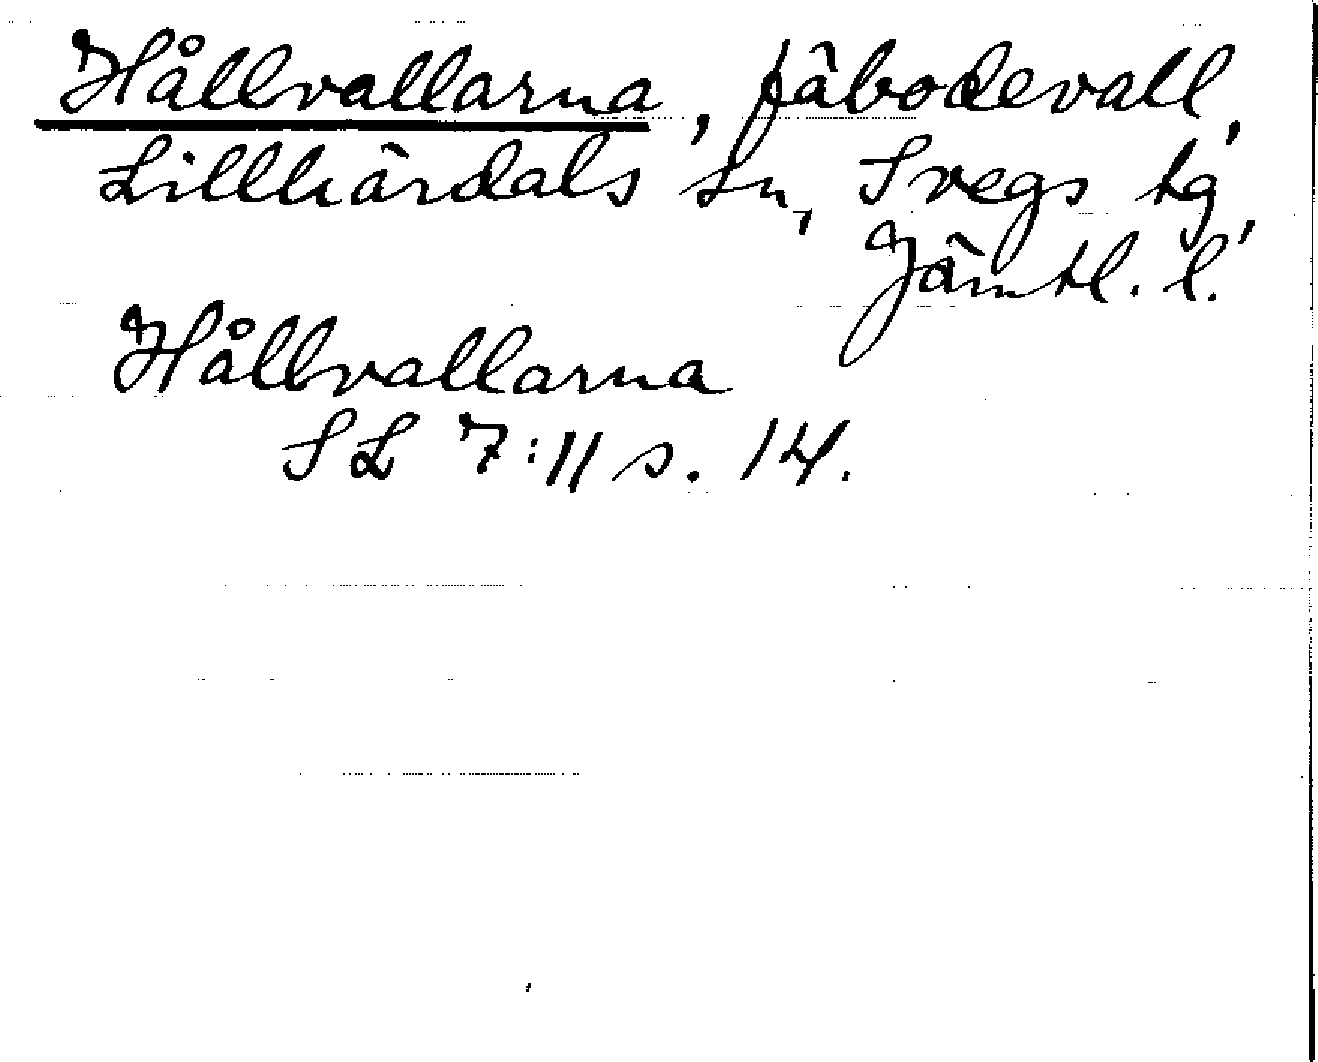 Hållvallarna, fäbodevall,
Lillhärdals sn, Svegs tg,
Jämtl. l.
Hållvallarna
SL 7:11 s. 14.